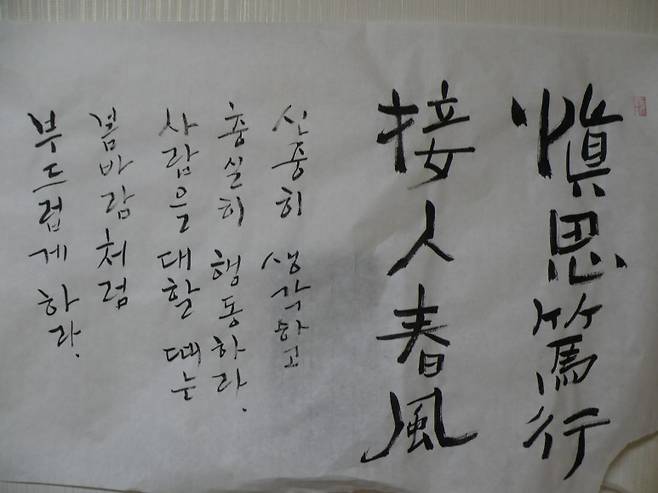 愼思篤行
接人春風
신중히 생각하고
충실히 행동하라.
사람을 대할 때는
봄바람처럼
부드럽게 하라.